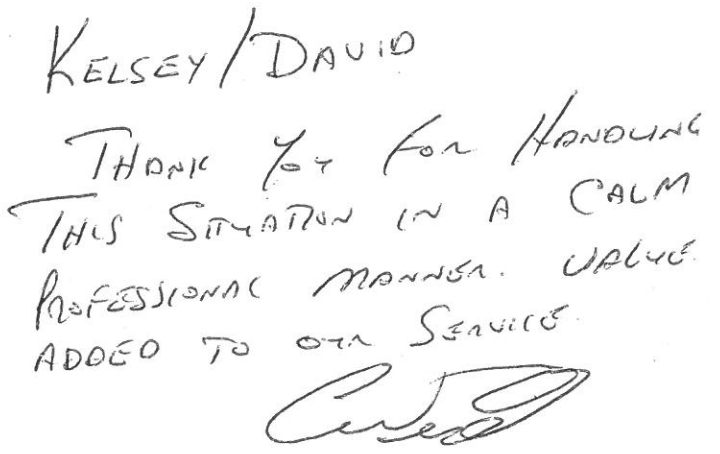 KELSEY/DAVID
THANK YOU FOR HANDLING
THIS SITUATION IN A CALM
PROFESSIONAL MANNER. VALUE
ADDED TO OUR SERVICE.